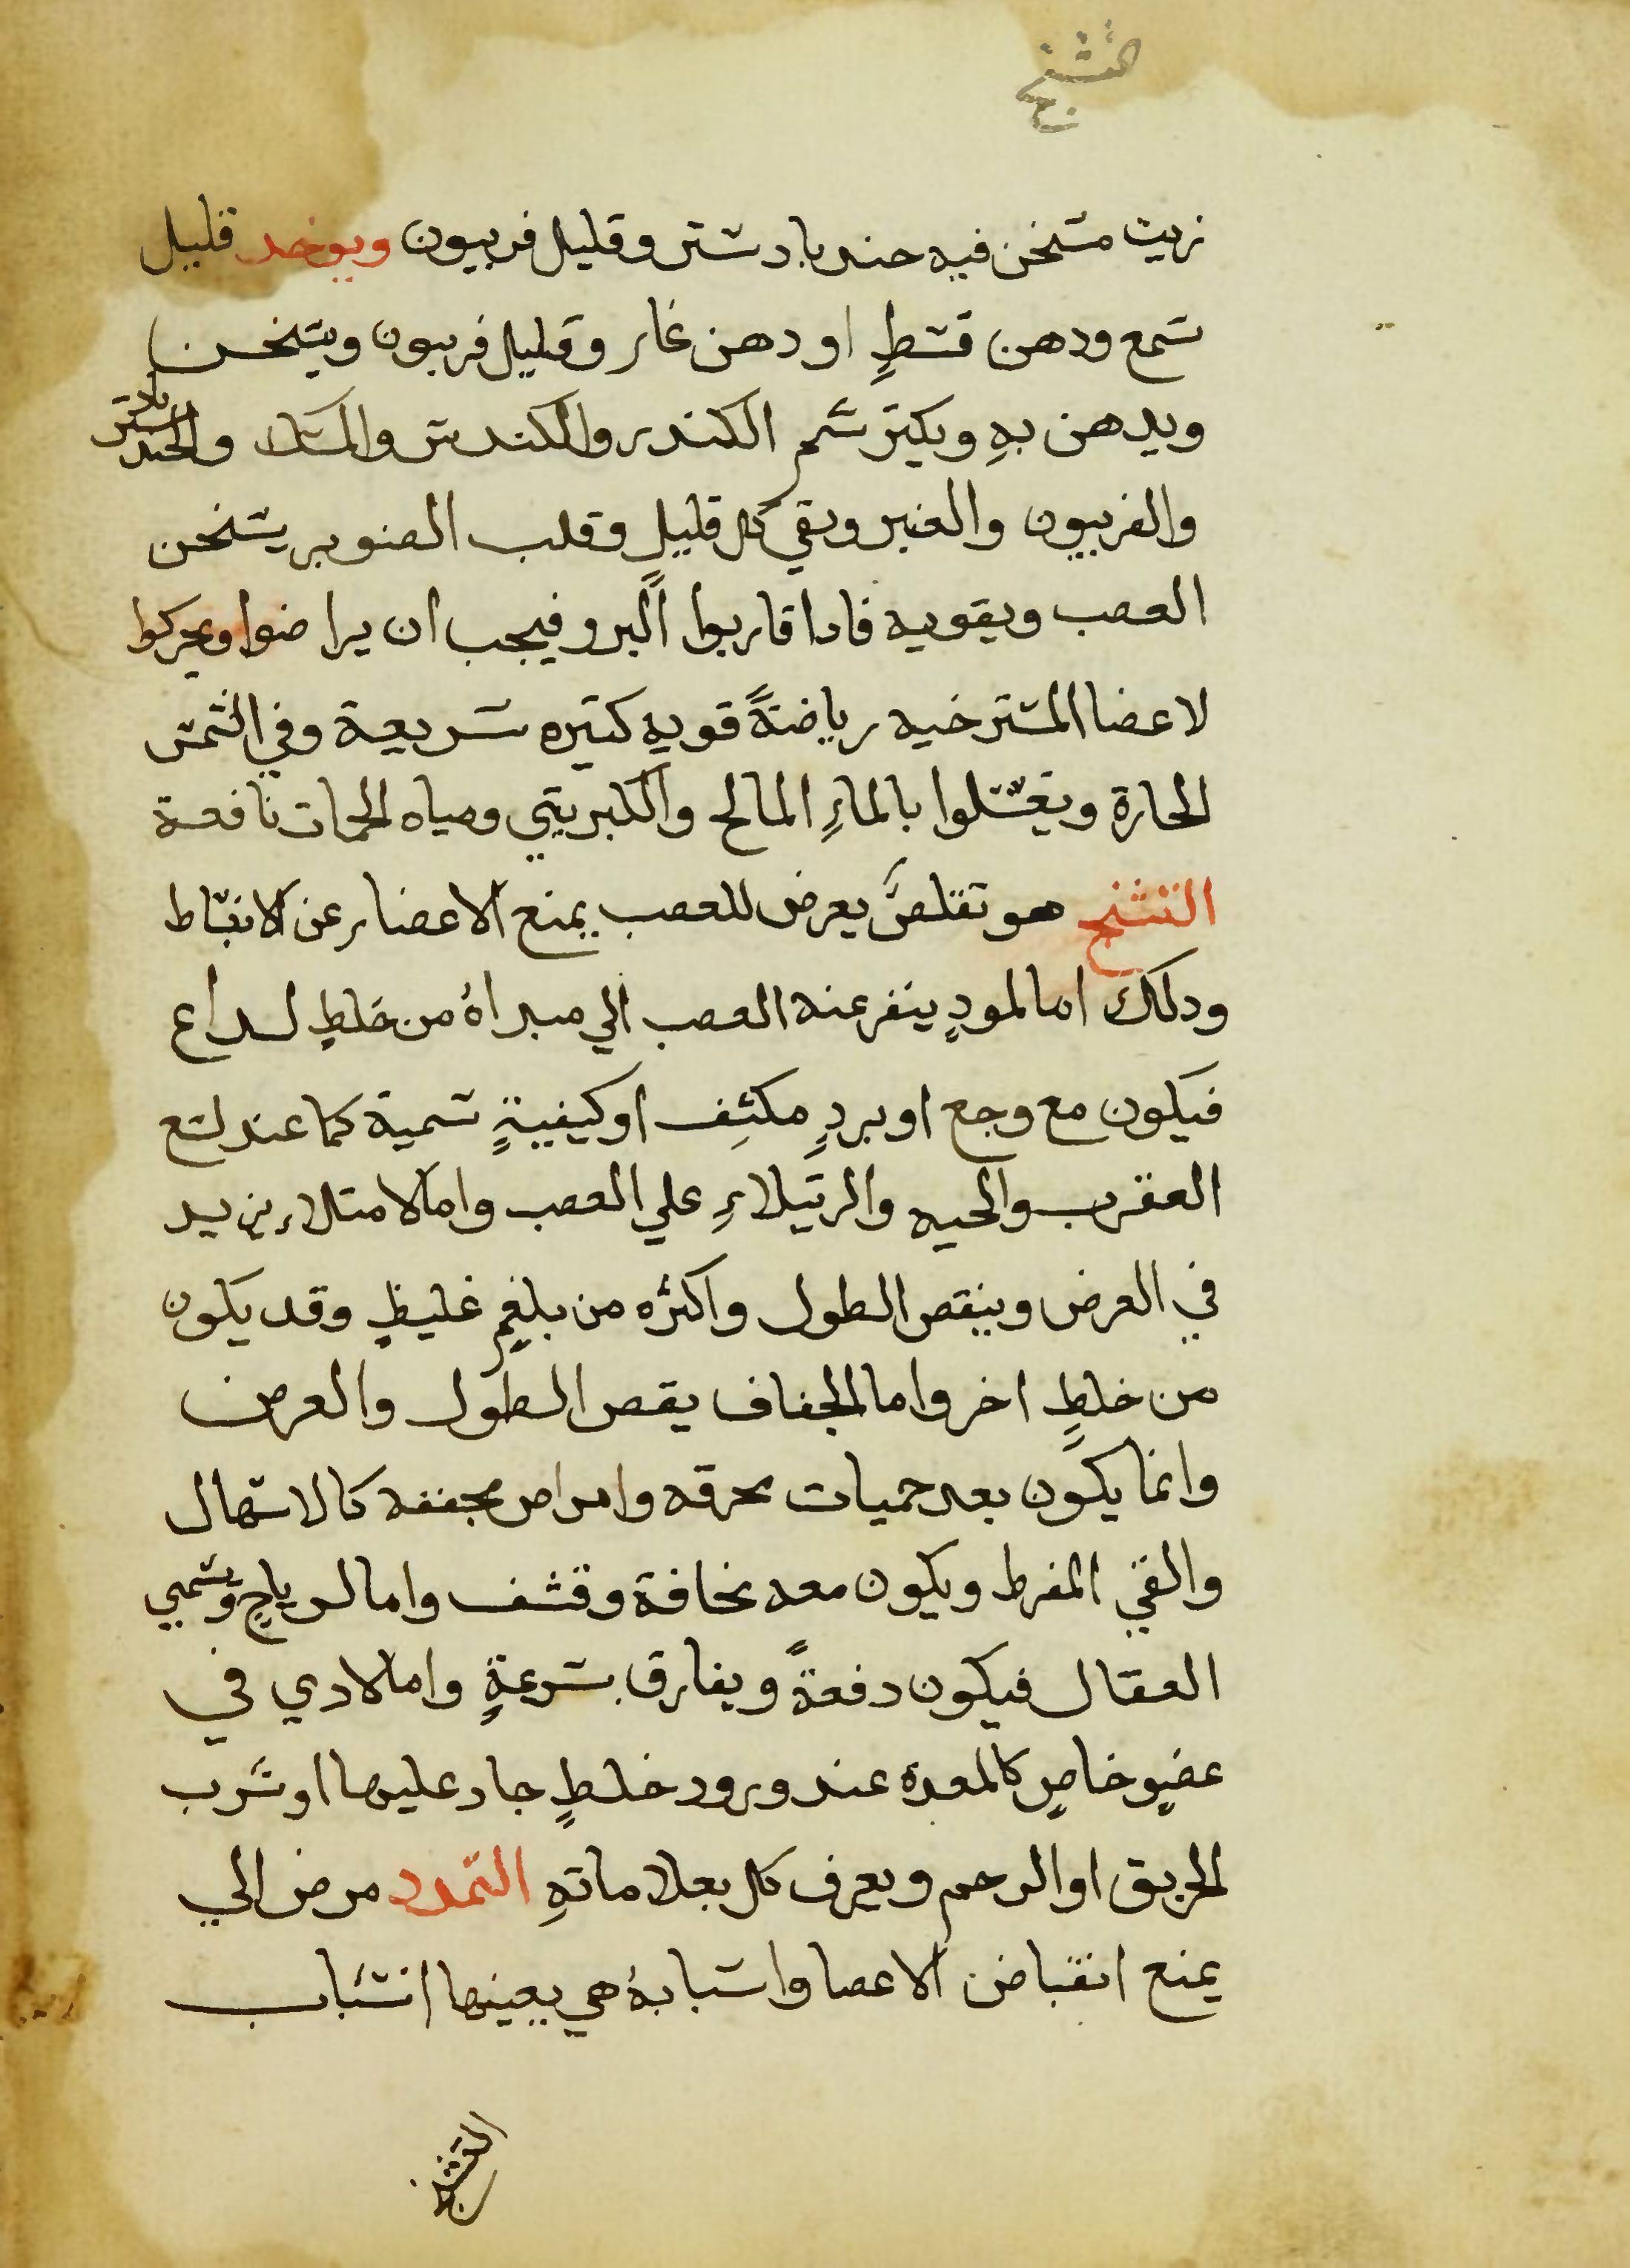 التشنج
زيت مسخن فيه جندبادستر وقليل فربيون ويوخد قليل
شمع ودهن قسط او دهن غار وقليل فربيون ويسخن
ويدهن بهِ ويكثر شم الكندر والكندس والمسك والجندبادستر
والفربيون والعنبر وبقي كل قليلٍ وقلب الصنوبر يسخن
العصب ويقويه فادا قاربوا البرو فيجب ان يراضوا ويحركوا
لاعضا المسترخيه رياضةً قويه كتيره سريعة وفي الشمس
الحارة ويغسلوا بالماءِ المالح والكبريتي ومياه الحمات نافعة
التشنج هو تقلصٌ يعرض للعصب يمنع الاعضا عن الانبساط
ودلك اما لمودٍ ينفر عنه العصب الي مبداهُ من خلطٍ لداع
فيكون مع وجع او بردٍ مكثِف او كيفيةٍ سمية كما عند لسع
العقرب والحيه والرتيلاءِ علي العصب واما لامتلاء يزيد
في العرض وينقص الطول واكثره من بلغمٍ غليظٍ وقد يكون
من خلطٍ اخر واما لجفاف يقص الطول والعرض
وانما يكون بعد حميات محرقه وامراض مجففه كالاسهال
والقي المفرط ويكون معه نحافة وقشف واما لرياحٍ وتسمي
العقال فيكون دفعةً ويفارق بسرعةٍ واما لادي في
عضوٍ خاصٍ كالمعدة عند ورود خلطٍ حاد عليها او شرب
الحريق او الرحم ويعرف كل بعلاماتهِ التمدد مرض الي
يمنع انقباض الاعصا واسبابهُ هي بعينها اسباب
التشنج